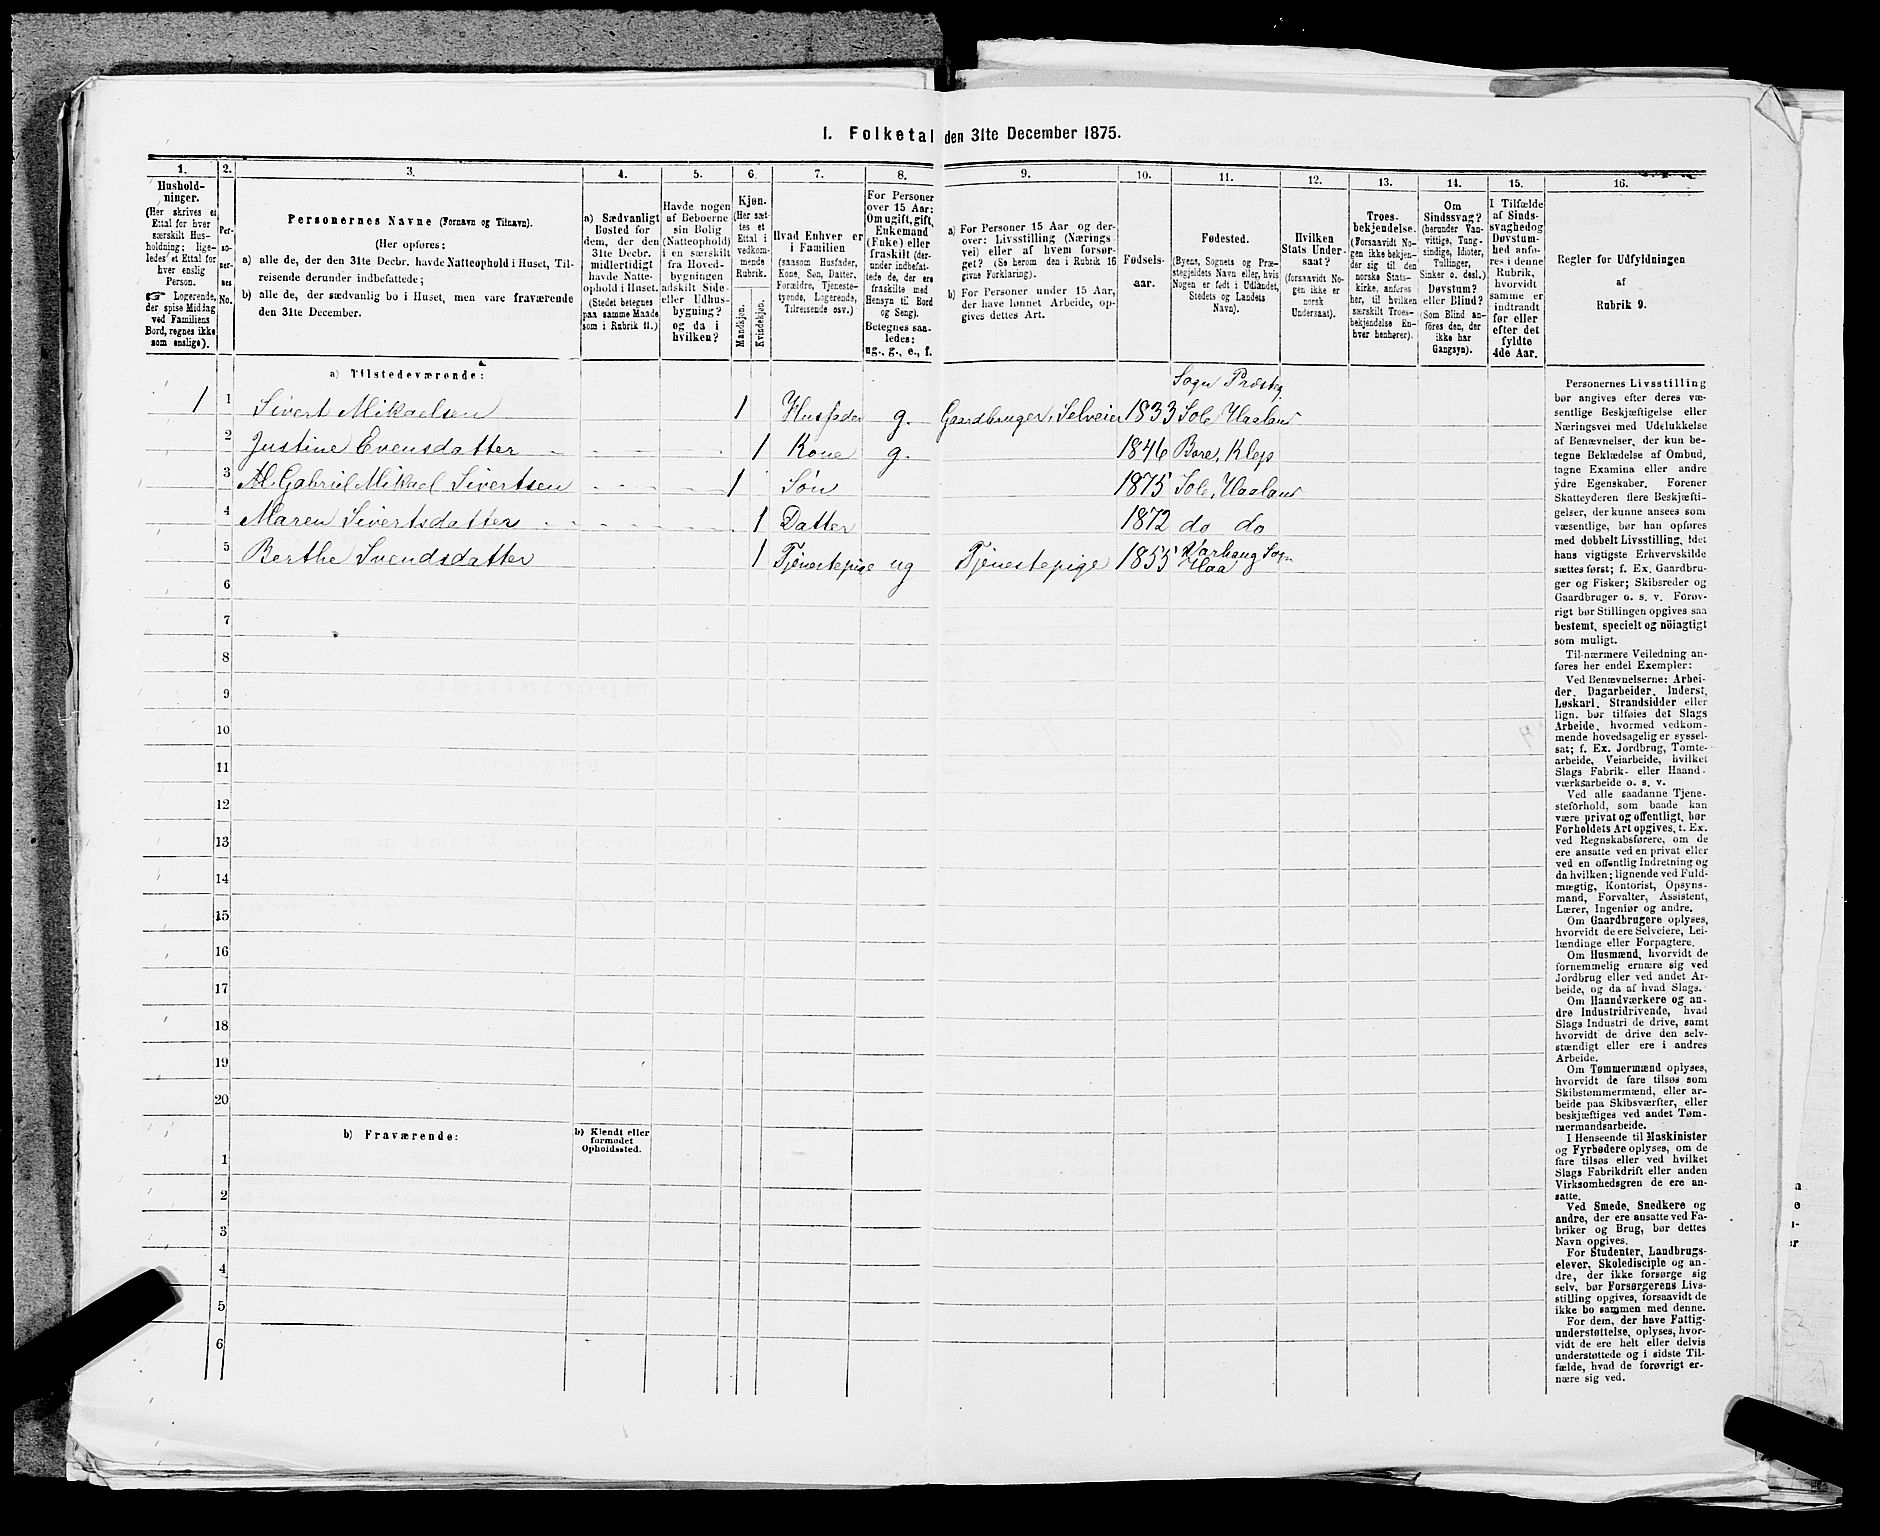 1. Folketal den 31te December 1875.
1.
2.
3.
4.
5.
6.
7.
8.
9.
10.
11.
12.
13.
14.
15.
16.
Hushold-
ninger.
(Her skrives et
Ettal for hver
særskilt Hus-
holdning; lige-
ledes et Ettal for
hver enslig
Person.
☞ Logerende,
der spise Middag
ved Familiens
Bord, regnes ikke
som enslige).
Per-
so-
ner-
nes
No.
Personernes Navne (Fornavn og Tilnavn).
(Her opføres:
a) alle de, der den 31te Decbr. havde Natteophold i Huset, Til-
reisende derunder indbefattede;
b) alle de, der sædvanlig bo i Huset, men vare fraværende
den 31te December.
a) Sædvanligt
Bosted for
dem, der den
31te Decbr.
midlertidigt
havde Natte-
ophold i Huset.
(Stedet betegnes
paa samme Maade
som i Rubrik II.)
Havde nogen
af Beboerne
sin Bolig
(Natteophold)
i en særskilt
fra Hoved-
bygningen
adskilt Side-
eller Udhus-
bygning?
og da i
hvilken?
Kjøn.
(Her sæt-
tes et
Ettal i
vedkom-
mende
Rubrik.
Mandkjøn.
Kvindekjøn.
Hvad Enhver er
i Familien
(saasom Husfader,
Kone, Søn, Datter,
Forældre, Tjeneste-
tyende, Logerende,
Tilreisende osv.)
For Personer
over 15 Aar:
Om ugift, gift,
Enkemand
(Enke) eller
fraskilt (der-
under indbefat-
tede de, der ere
fraskilte med
Hensyn til Bord
og Seng).
Betegnes saa-
ledes:
ug., g., e., f.
a) For Personer 15 Aar og der-
over: Livsstilling (Nærings-
vei) eller af hvem forsør-
get? (Se herom den i Rubrik 16
givne Forklaring).
b) For Personer under 15 Aar,
der have lønnet Arbeide, op-
gives dettes Art.
Fødsels-
aar.
Fødested.
(Byens, Sognets og Præ-
stegjeldets Navn eller, hvis
Nogen er født i Udlandet,
Stedets og Landets
Navn).
Hvilken
Stats Under-
saat?
(forsaavidt No-
gen ikke er
norsk
Undersaat).
Troes-
bekjendelse.
(Forsaavidt No-
gen ikke bekjen-
der sig til den
norske Stats-
kirke, anføres
her, til hvilken
særskilt Troes-
bekjendelse En-
hver henhører).
Om
Sindssvag?
(herunder Van-
vittige, Tung-
sindige, Idioter,
Tullinger,
Sinker o. desl.)
Døvstum?
eller Blind?
(Som Blind an-
føres den, der
ikke har
Gangsyn).
I Tilfælde
af Sinds-
svaghed og
Døvstum-
hed anfø-
res i denne
Rubrik,
hvorvidt
samme er
indtraadt
før eller
efter det
fyldte
4de Aar.
Regler for Udfyldningen
af
Rubrik 9.
a) Tilstedeværende:
Sogn Præsteg.
1 1 Sivert Mikaelsen 1 Husfader g. Gaardbruger, Selveier 1833 Sole, Haaland
2 Justine Evensdatter 1 Kone g. 1846 Bore, Klep
3 Gabriel Mikael Sivertsen 1 Søn 1875 Sole, Haaland
4 Maren Sivertsdatter 1 Datter 1872 do do
5 Berthe Svendsdatter 1 Tjenestepige ug Tjenestepige 1855 Varhaug Sogn
Haa
6
7
8
9
10
11
12
13
14
15
16
17
18
19
20
b) Fraværende:
b) Kjendt eller
formodet
Opholdssted.
1
2
3
4
5
6
Personernes Livsstilling
bør angives efter deres væ-
sentlige Beskjæftigelse eller
Næringsvei med Udelukkelse
af Benævnelser, der kun be-
tegne Beklædelse af Ombud,
tagne Examina eller andre
ydre Egenskaber. Forener
Skatteyderen flere Beskjæfti-
gelser, der kunne ansees som
væsentlige, bør han opføres
med dobbelt Livsstilling, idet
hans vigtigste Erhvervskilde
sættes først; f. Ex. Gaardbru-
ger og Fisker; Skibsreder og
Gaardbruger o. s. v. Forøv-
rigt bør Stillingen opgives saa
bestemt, specielt og nöiagtigt
som muligt.
Til nærmere Veiledning an-
føres her endel Exempler:
Ved Benævnelserne: Arbei-
der, Dagarbeider, Inderst,
Løskarl, Strandsidder eller
lign. bør tilføies det Slags
Arbeide, hvormed vedkom-
mende hovedsagelig er syssel-
sat; f. Ex. Jordbrug, Tomte-
arbeide, Veiarbeide, hvilket
Slags Fabrik- eller Haand-
værksarbeide o. s. v.
Ved alle saadanne Tjene-
steforhold, som baade kan
være privat og offentligt, bør
Forholdets Art opgives, t. Ex.
ved Regnskabsførere, om de
ere ansatte ved en privat eller
ved en offentlig Indretning og
da hvilken; lignende ved Fuld-
mægtig, Kontorist, Opsyns-
mand, Forvalter, Assistent,
Lærer, Ingeniør og andre.
Om Gaardbrugere oplyses,
hvorvidt de ere Selveiere, Lei-
lændinge eller Forpagtere.
Om Husmænd, hvorvidt de
fornemmelig ernære sig ved
Jordbrug eller ved andet Ar-
beide, og da af hvad Slags.
Om Haandværkere og an-
dre Industridrivende, hvad
Slags Industri de drive, samt
hvorvidt de drive den selv-
stændigt eller ere i andres
Arbeide.
Om Tømmermænd oplyses,
hvorvidt de fare tilsøs som
Skibstømmermænd, eller ar-
beide paa Skibsværfter, eller
beskjæftiges ved andet Tøm-
mermandsarbeide.
I Henseende til Maskinister
og Fyrbødere oplyses, om de
fare tilsøs eller ved hvilket
Slags Fabrikdrift eller anden
Virksomhedsgren de ere an-
satte.
Ved Smede, Snedkere og
andre, der ere ansatte ved Fa-
briker og Brug, bør dettes
Navn opgives.
For Studenter, Landbrugs-
elever, Skoledisciple og an-
dre, der ikke forsørge sig
selv, bør Forsørgerens Livs-
stilling opgives, forsaavidt de
ikke bo sammen med denne.
For dem, der have Fattig-
understøttelse, oplyses, hvor-
vidt de ere helt eller delvis
understøttede og i sidste Til-
fælde, hvad de forøvrigt er-
nære sig ved.